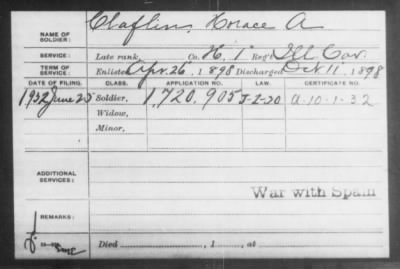 NAME OF SOLDIER: Claflin, Horace A
SERVICE: Late rank, Co. H, 1 Reg't Ill Cav.
TERM OF SERVICE: Enlisted Apr. 26, 1898 Discharged Oct 11, 1898
DATE OF FILING. CLASS. APPLICATION NO. LAW. CERTIFICATE NO.
1932 June 25 Soldier, 1,720,905 A-10-1-32
Widow,
Minor,
ADDITIONAL SERVICES:
War with Spain
REMARKS:
Died , 1 , at